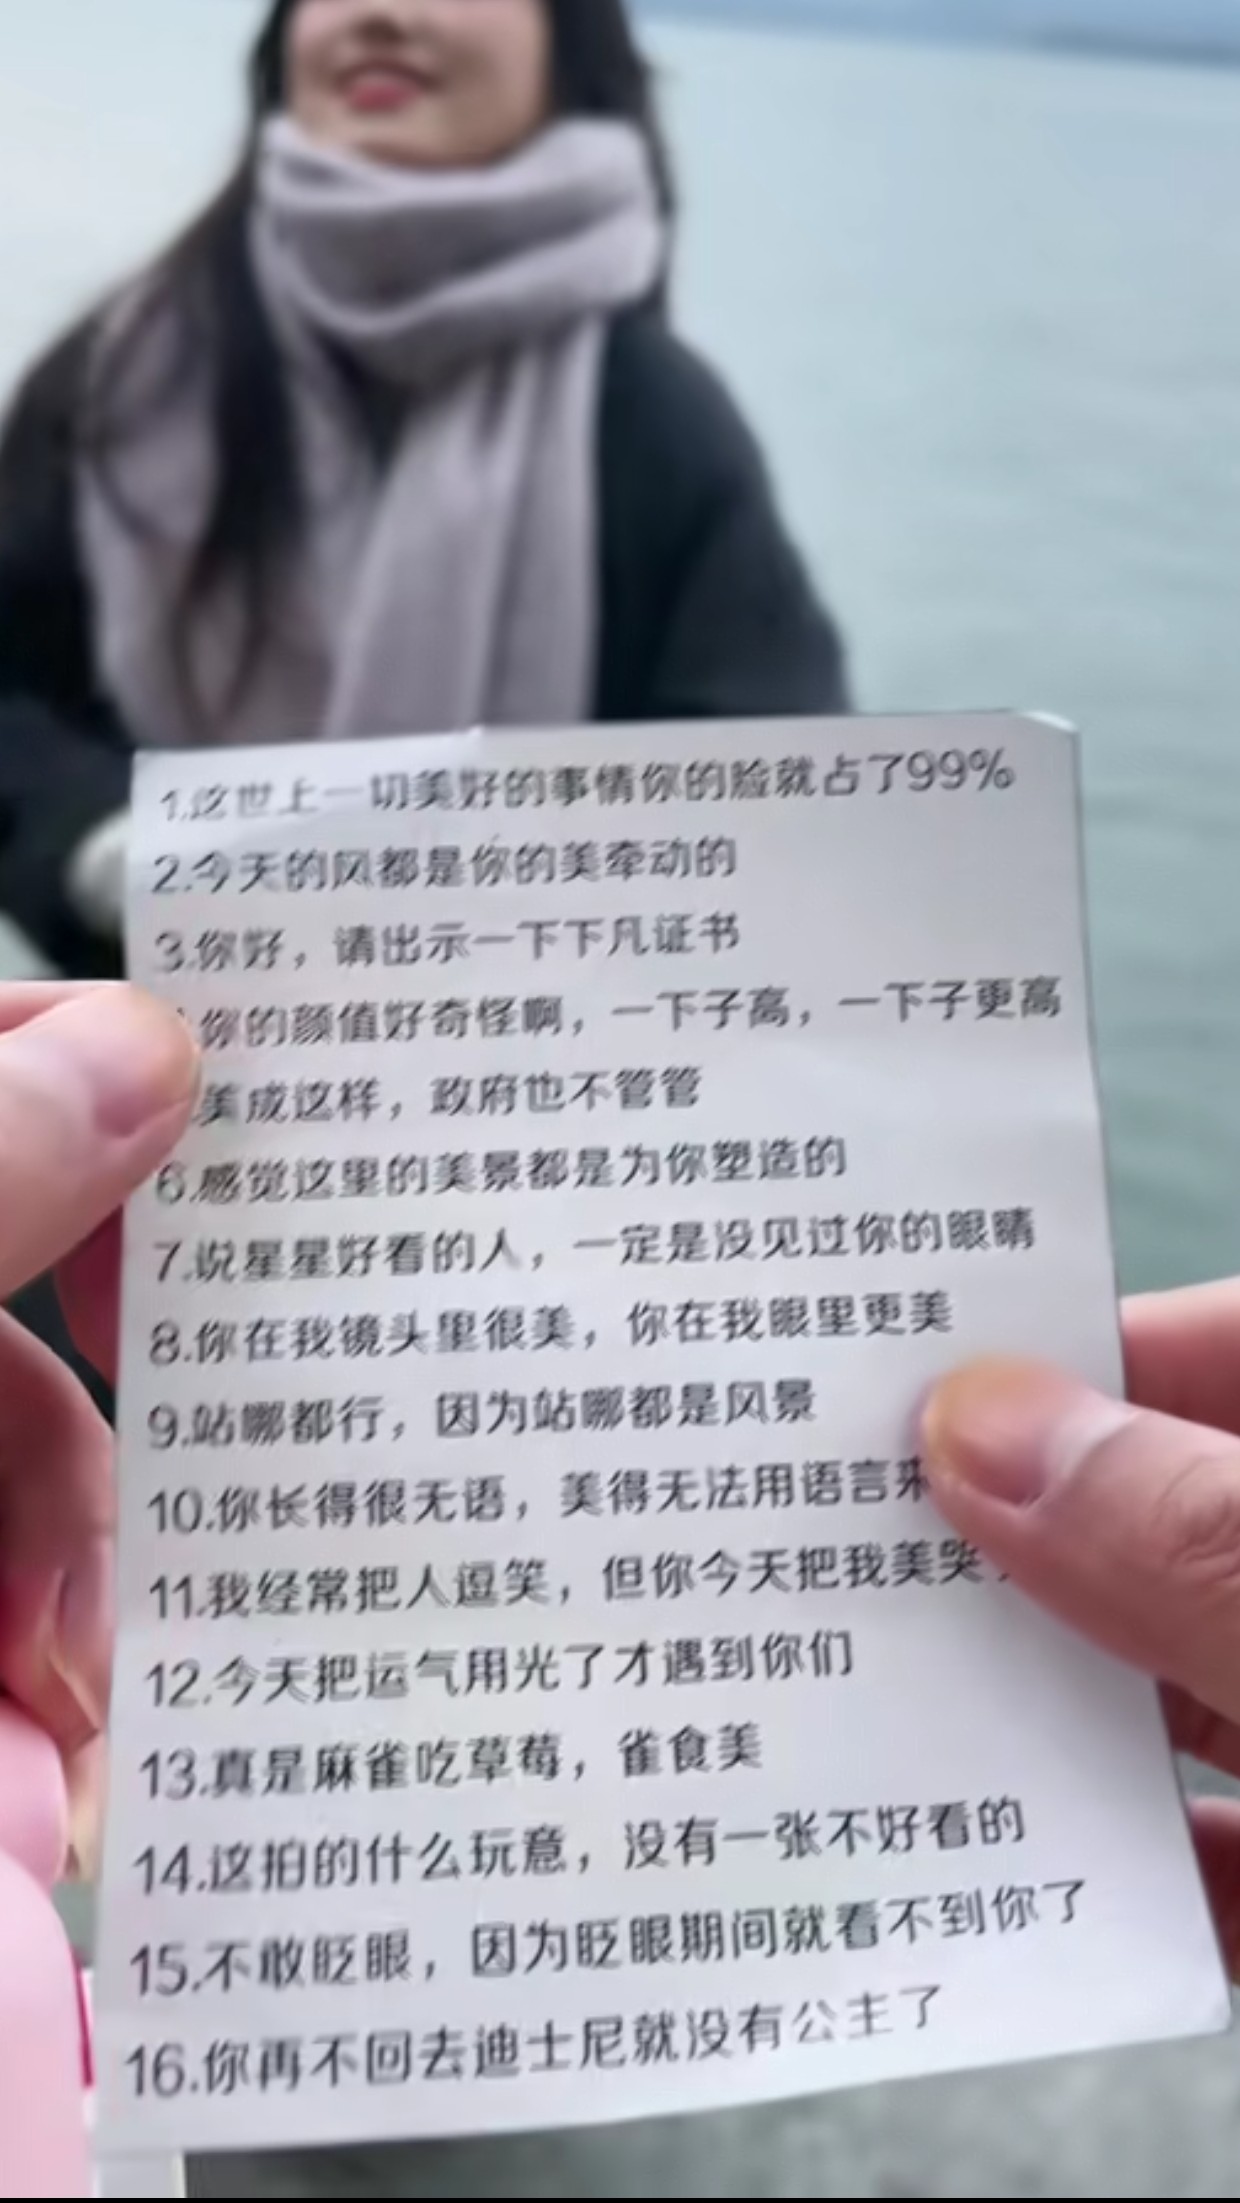 1.这世上一切美好的事情你的脸就占了99%
2.今天的风都是你的美牵动的
3.你好，请出示一下下凡证书
你的颜值好奇怪啊，一下子高，一下子更高
.美成这样，政府也不管管
6.感觉这里的美景都是为你塑造的
7.说星星好看的人，一定是没见过你的眼睛
8.你在我镜头里很美，你在我眼里更美
9.站哪都行，因为站哪都是风景
10.你长得很无语，美得无法用语言来
11.我经常把人逗笑，但你今天把我美哭
12.今天把运气用光了才遇到你们
13.真是麻雀吃草莓，雀食美
14.这拍的什么玩意，没有一张不好看的
15.不敢眨眼，因为眨眼期间就看不到你了
16.你再不回去迪士尼就没有公主了